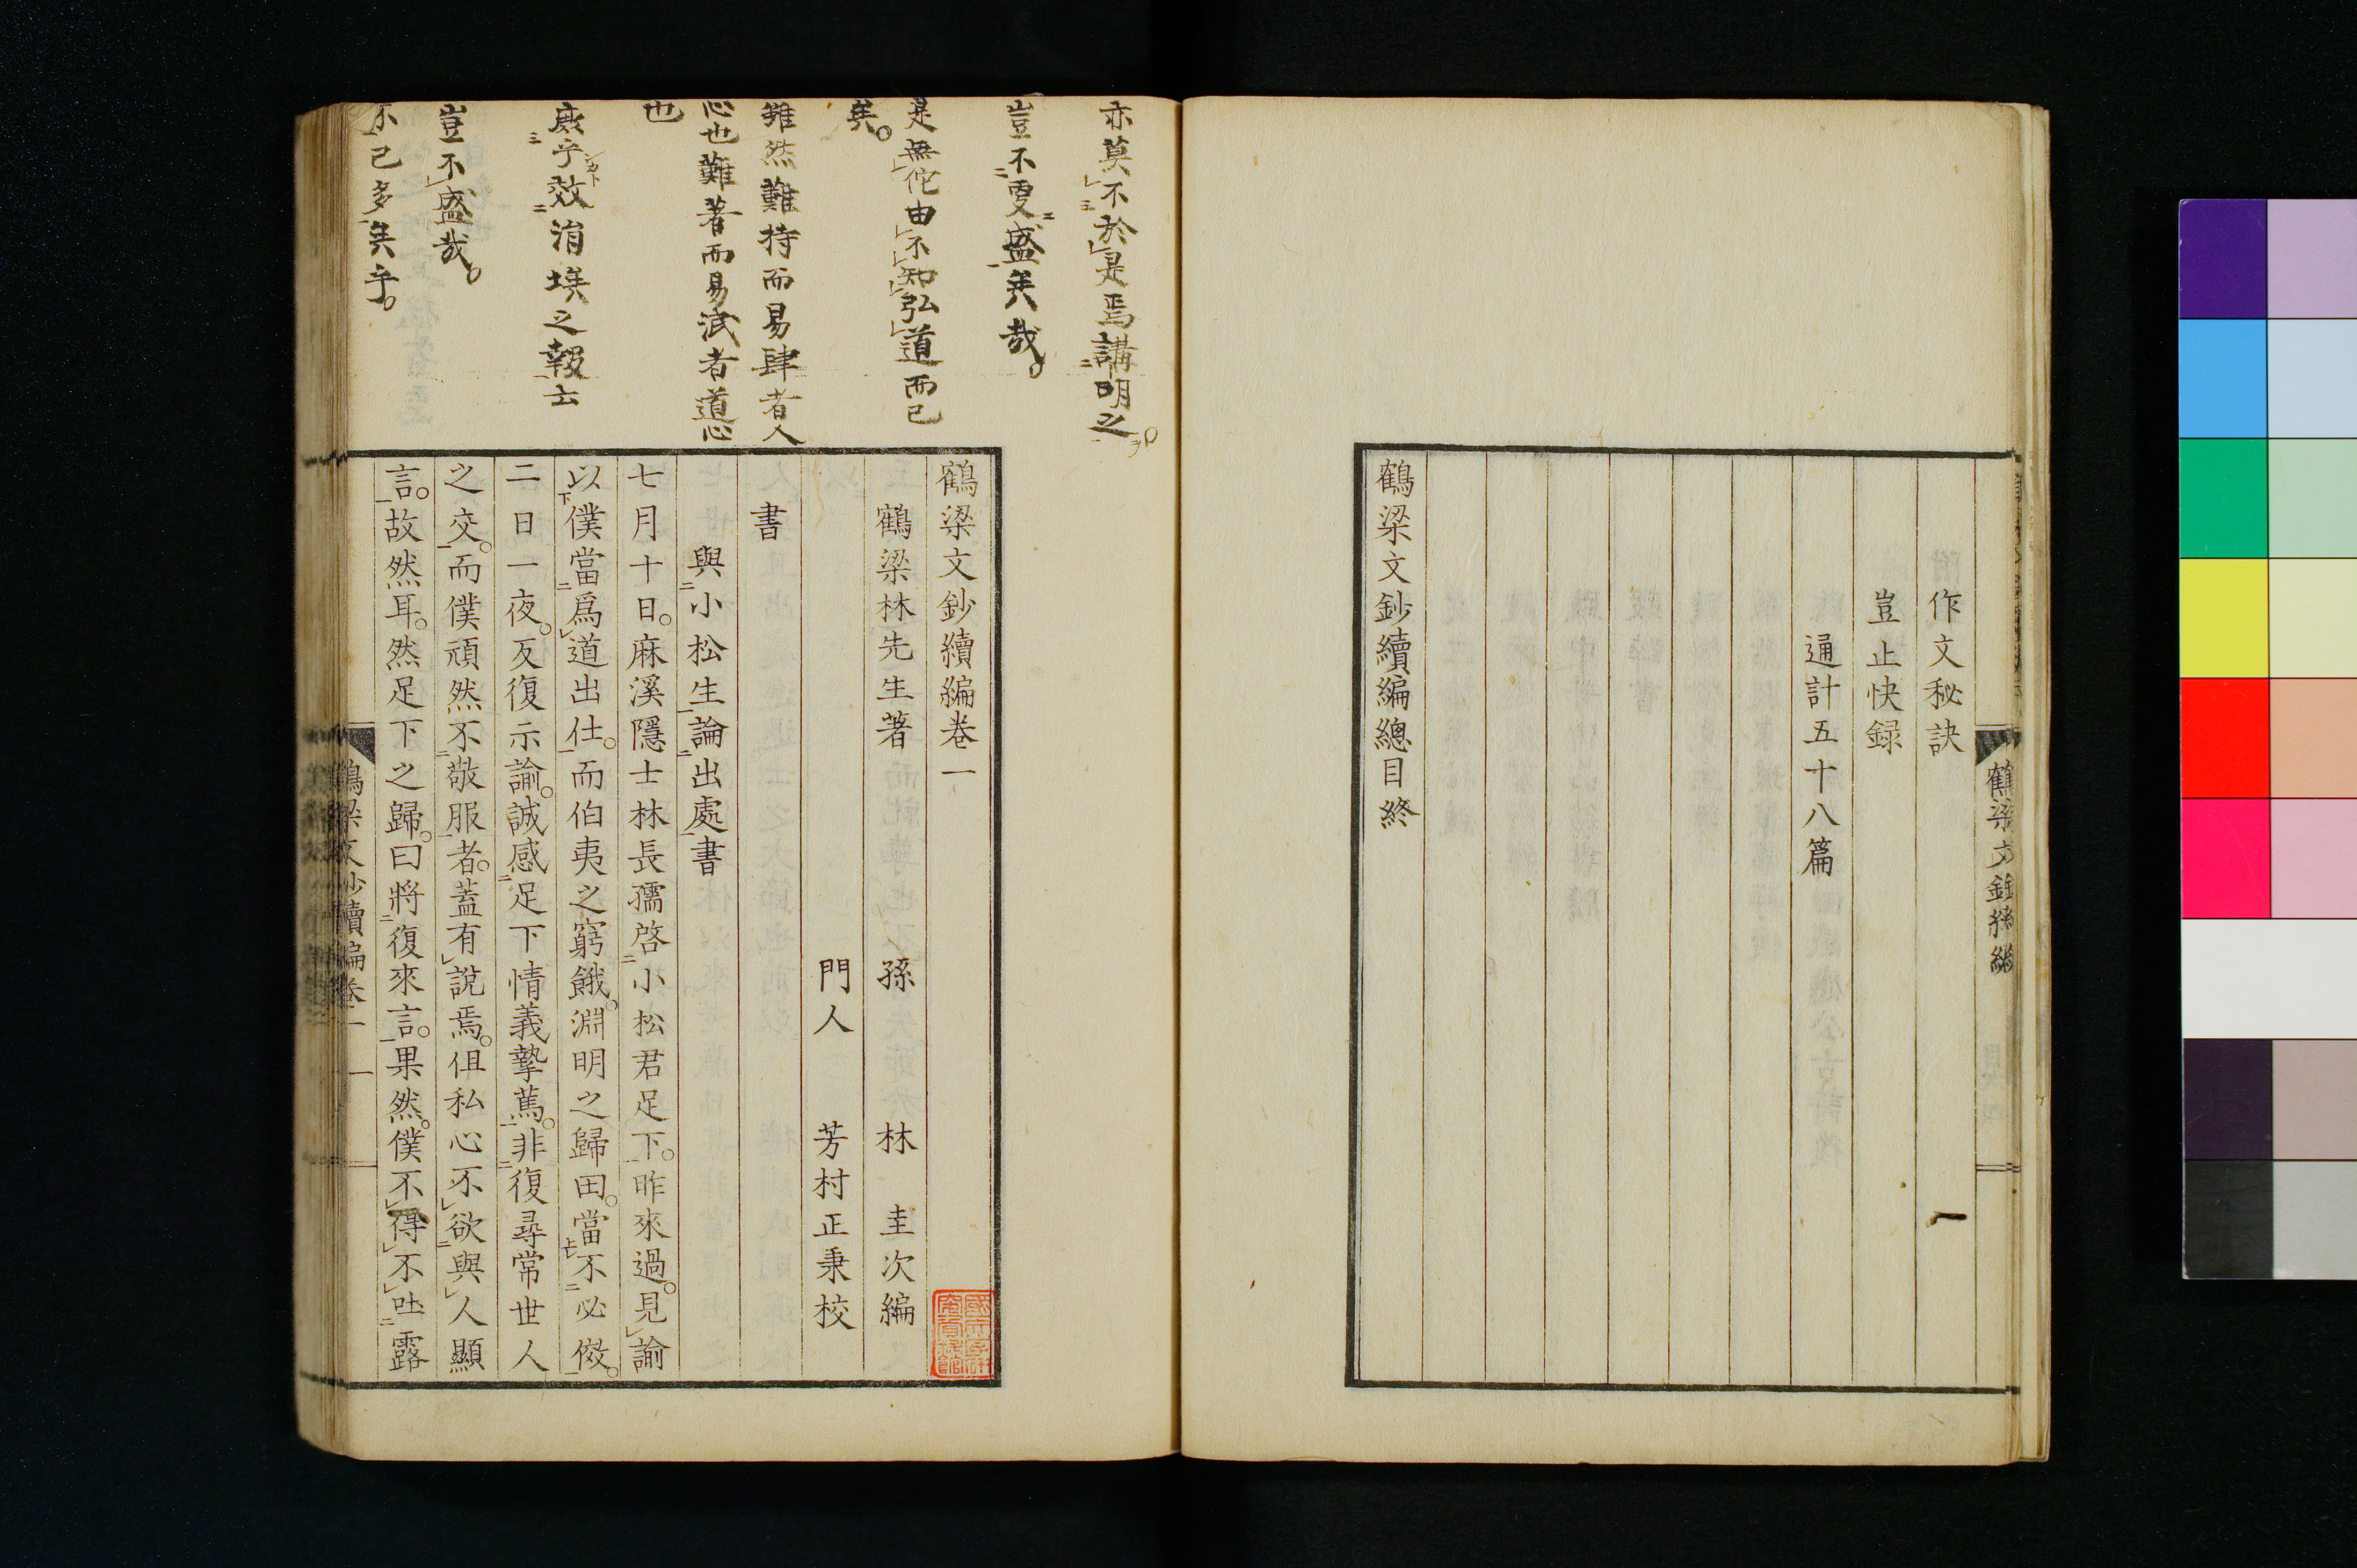 作文秘訣
豈止快録
通計五十八篇
鶴梁文鈔續編總目終
亦莫不於是焉講明之。
豈不更盛矣哉。
是無佗由不知弘道而已
矣。
雖然難持而易肆者人
心也難著而易泯者道心
也
庶乎效涓埃之報士
豈不盛哉。
不已多矣乎。
鶴梁文鈔續編卷一
鶴梁林先生著 孫 林 圭次編
門人 芳村正秉校
書
與小松生論出處書
七月十日。麻溪隱士林長孺啓小松君足下。昨來過。見諭
以僕當爲道出仕。而伯夷之窮餓。淵明之歸田。當不必傚。
二日一夜。反復示諭。誠感足下情義摯篤。非復尋常世人
之交。而僕頑然不敬服者。蓋有說焉。但私心不欲與人顯
言。故然耳。然足下之歸。曰將復來言。果然。僕不得不吐露
鶴梁文鈔續編卷一 一